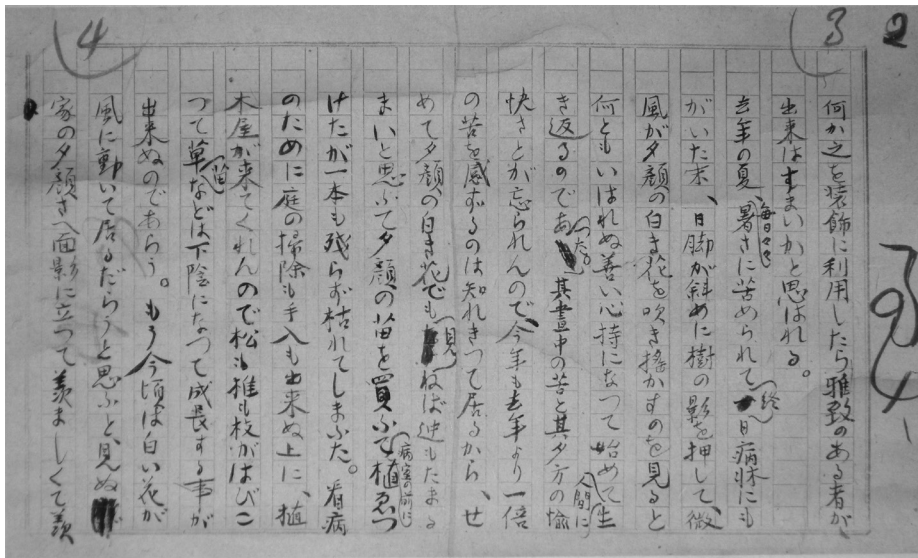 何か之を装飾に利用したら雅致のある者が
出来はすまいかと思はれる。
去年の夏、毎日々々暑さに苦められて終日病牀にも
がいた末、日脚が斜めに樹の影を押して、微
風が夕顔の白き花を吹き揺かすのを見ると
何ともいはれぬ善い心持になつて始めて人間に生
き返るのであつた。其昼中の苦と其夕方の愉
快さとが忘られんので、今年も去年より一倍
の苦を感ずるのは知れきつて居るから、せ
めて夕顔の白き花でも見ねば迚もたまる
まいと思ふて夕顔の苗を買ふて病室の前に植ゑつ
けたが一本も残らず枯れてしまふた。看病
のために庭の掃除も手入も出来ぬ上に、植
木屋が来てくれんので松も椎も枝がはびこ
つて草苗などは下陰になつて成長する事が
出来ぬのであらう。もう今頃は白い花が
風に動いて居るだらうと思ふと、見ぬ
家の夕顔さへ面影に立つて羨ましくて羨
3
4